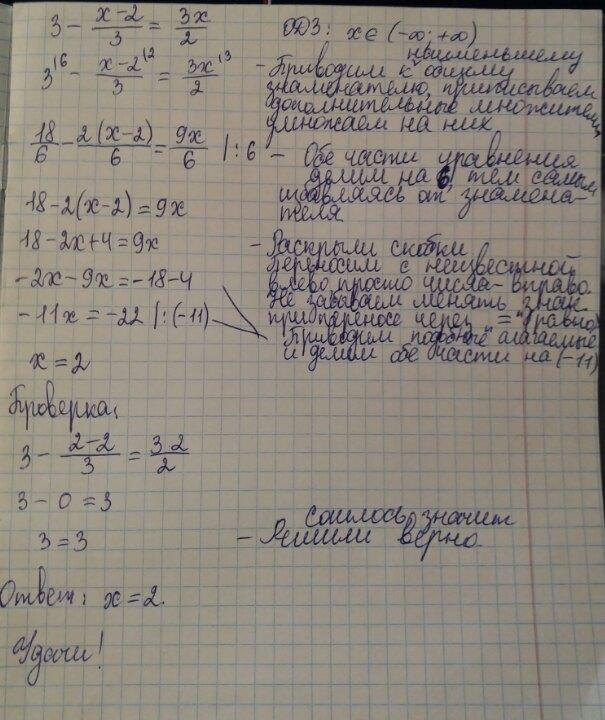 3 - (x-2)/3 = 3x/2
ОДЗ: x ∈ (-∞; +∞)
3^{16} - (x-2)^{12}/3 = 3x^{13}/2
- Приводим к общему
наименьшему
знаменателю, приписываем
дополнительные множители,
умножаем на них
18/6 - 2(x-2)/6 = 9x/6 |:6
- Обе части уравнения
делим на 6, тем самым
избавляясь от знамена-
теля
18-2(x-2)=9x
18-2x+4=9x
- Раскрыли скобки
переносим с неизвестной
влево, просто числа - вправо.
-2x-9x=-18-4
Не забываем менять знак
при переносе через "=" равно
-11x = -22 |:(-11)
Приводим подобные слагаемые
и делим обе части на (-11)
x=2
Проверка:
3 - (2-2)/3 = 3·2/2
3 - 0 = 3
3=3
Сошлось, значит
- Решили верно
Ответ: x=2.
Удачи!